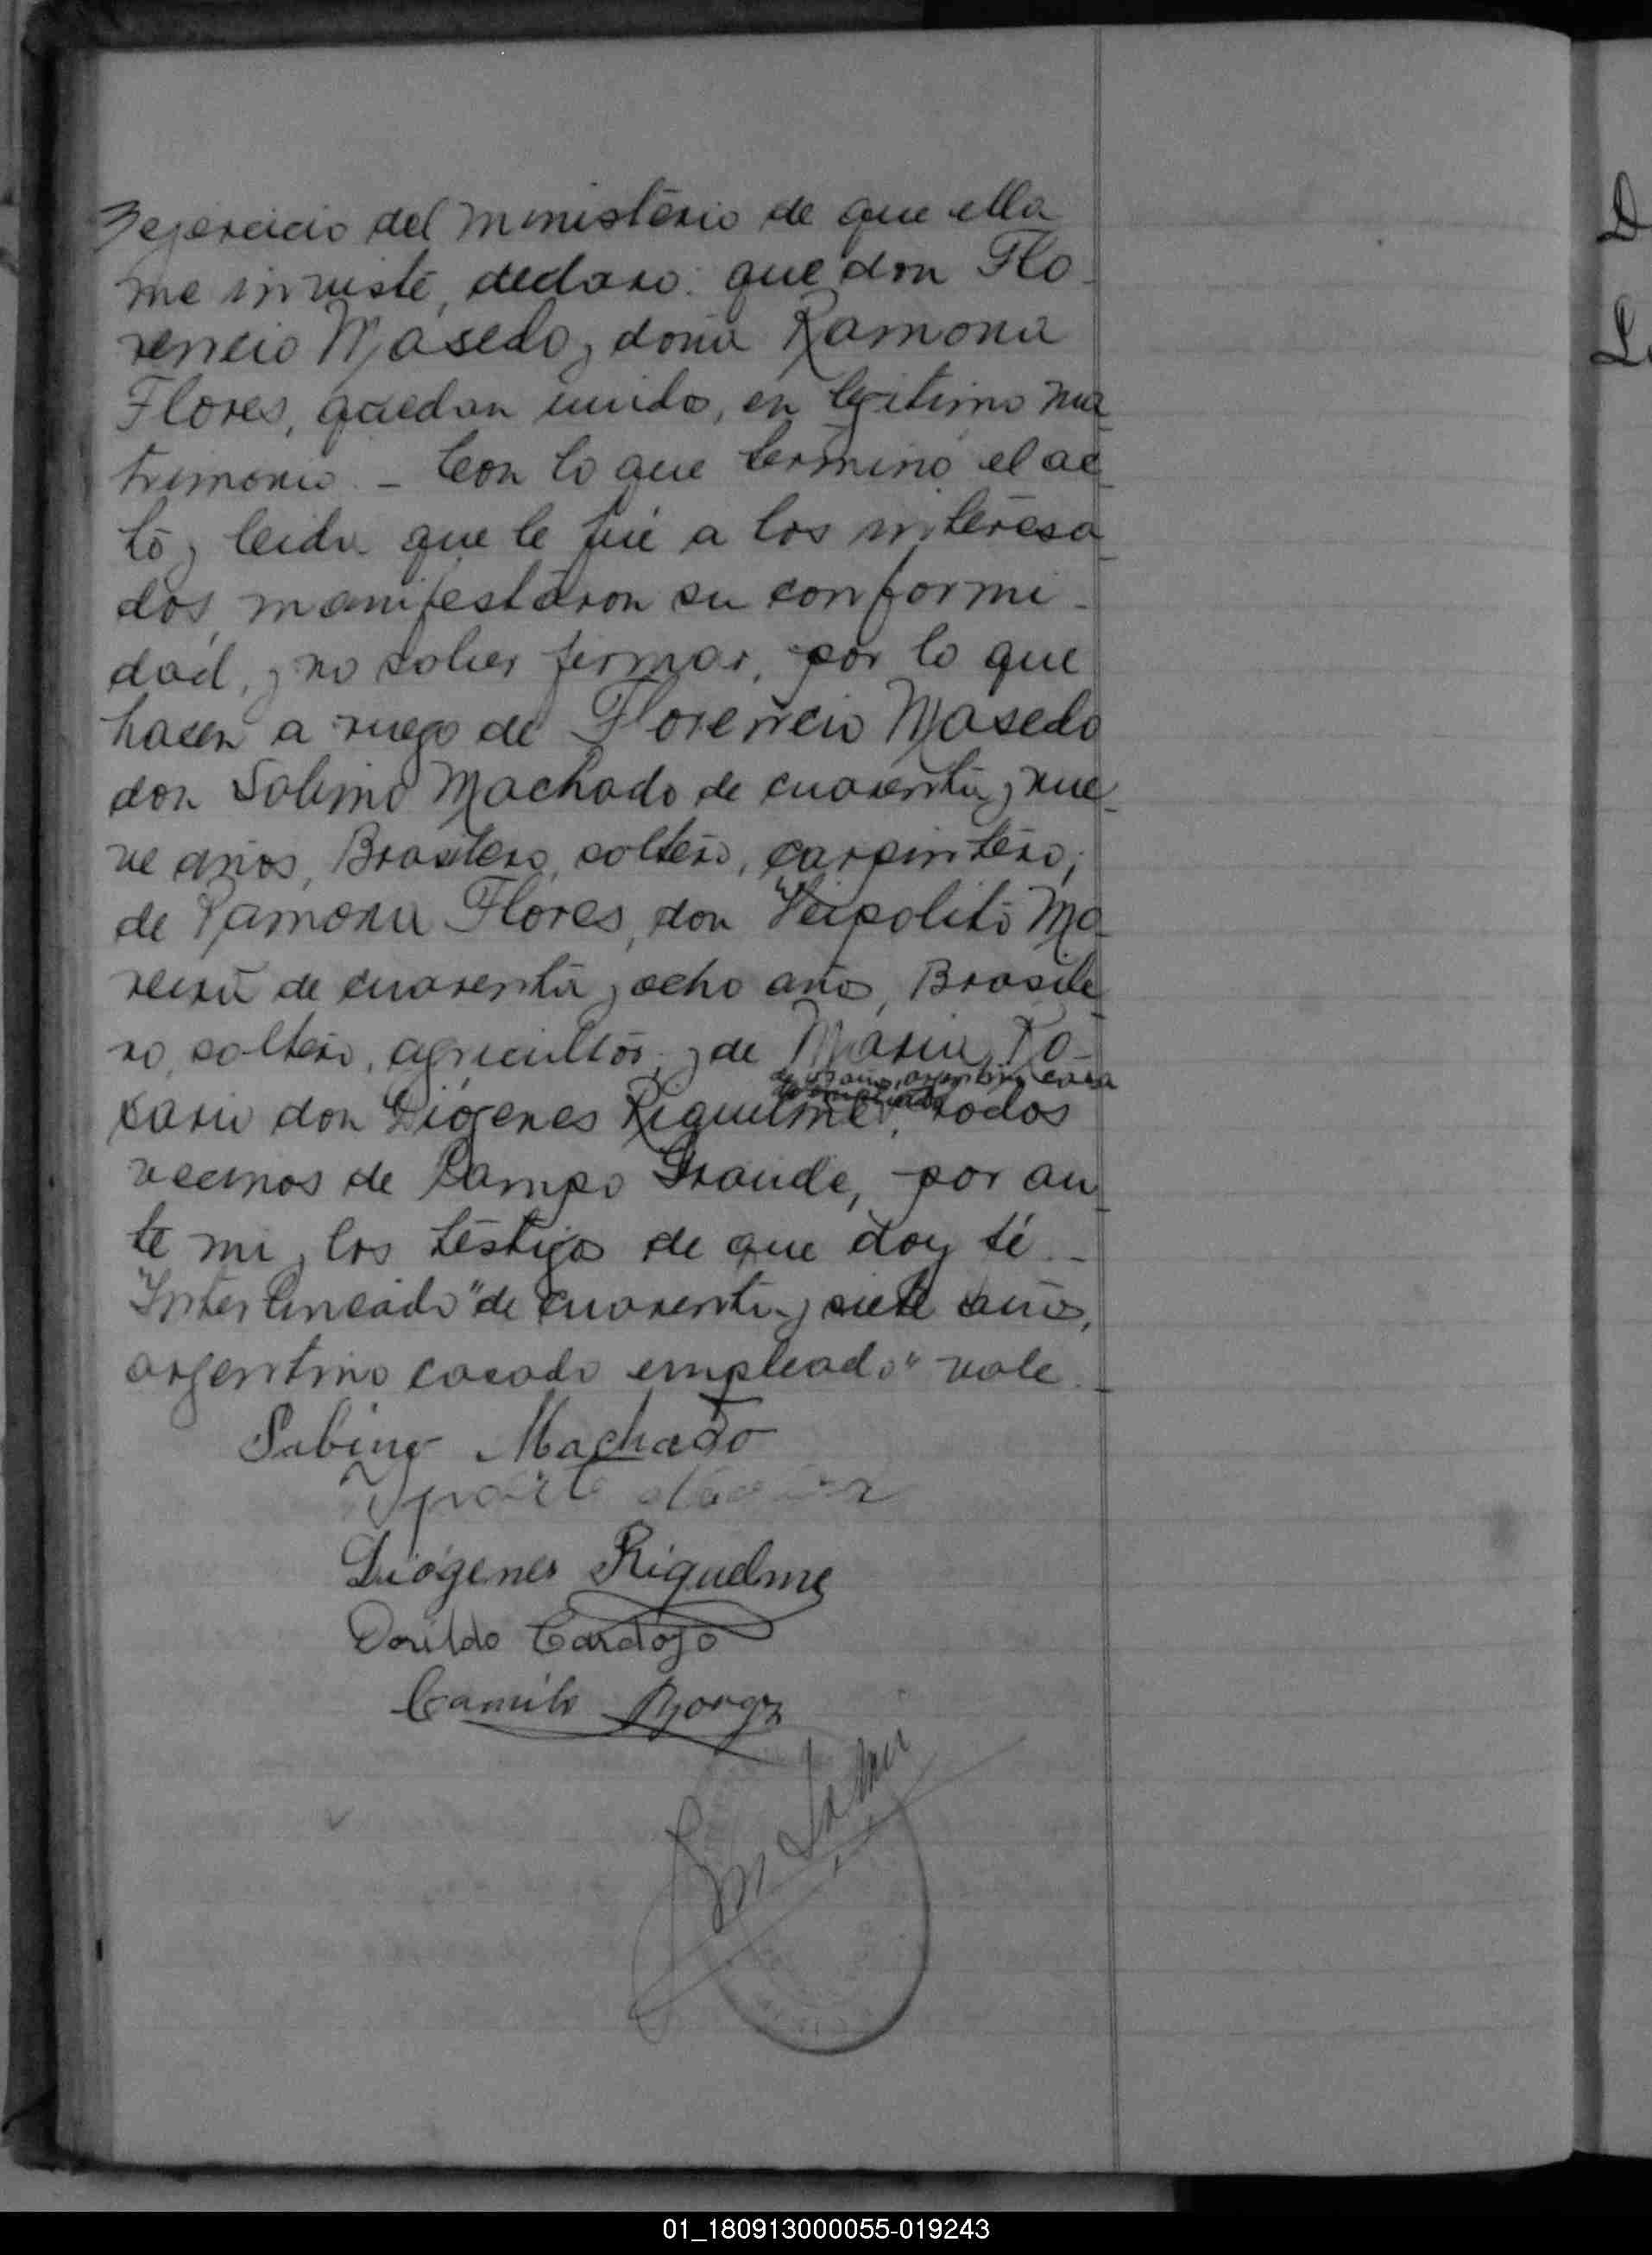 y ejercicio del ministerio de que ella
me inviste, declaro: que don Flo-
rencio Masedo y doña Ramona
Flores, quedan unidos, en legitimo ma-
trimonio. - Con lo que terminó el ac-
to, y leida que le fué a los interesa-
dos, manifestaron su conformi-
dad, y no saber firmar, por lo que
hacen a ruego de Florencio Masedo
don Sabino Machado de cuarenta y nue-
ve años, Brasilero, soltero, carpintero;
de Ramona Flores, don Heipolito Mo-
reira de cuarenta y ocho años, Brasile-
ro, soltero, agricultor; y de Maria Ro-
de 47 años, argentino, casa
do empleado
saria don Diógenes Riquelme, todos
vecinos de Campo Grande, por an-
te mi y los testigos de que doy fé. -
"Interlineado" de cuarenta y siete años,
argentino casado empleado" vale. -
Sabino Machado
Diógenes Riquelme
Dorildo Cardozo
Camilo
01_180913000055-019243